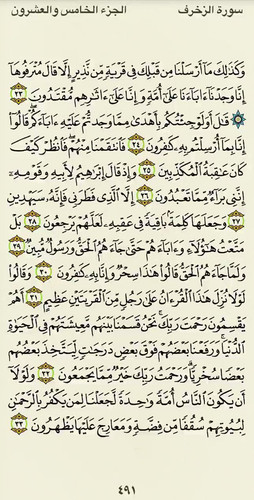 سورة الزخرف
الجزء الخامس والعشرون
وَكَذَٰلِكَ مَآ أَرْسَلْنَا مِن قَبْلِكَ فِى قَرْيَةٍ مِّن نَّذِيرٍ إِلَّا قَالَ مُتْرَفُوهَآ
إِنَّا وَجَدْنَآ ءَابَآءَنَا عَلَىٰٓ أُمَّةٍ وَإِنَّا عَلَىٰٓ ءَاثَٰرِهِم مُّقْتَدُونَ ٢٣
۞ قَٰلَ أَوَلَوْ جِئْتُكُم بِأَهْدَىٰ مِمَّا وَجَدتُّمْ عَلَيْهِ ءَابَآءَكُمْ ۖ قَالُوٓا۟
إِنَّا بِمَآ أُرْسِلْتُم بِهِۦ كَٰفِرُونَ ٢٤ فَٱنتَقَمْنَا مِنْهُمْ ۖ فَٱنظُرْ كَيْفَ
كَانَ عَٰقِبَةُ ٱلْمُكَذِّبِينَ ٢٥ وَإِذْ قَالَ إِبْرَٰهِيمُ لِأَبِيهِ وَقَوْمِهِۦٓ
إِنَّنِى بَرَآءٌ مِّمَّا تَعْبُدُونَ ٢٦ إِلَّا ٱلَّذِى فَطَرَنِى فَإِنَّهُۥ سَيَهْدِينِ
٢٧ وَجَعَلَهَا كَلِمَةًۢ بَاقِيَةً فِى عَقِبِهِۦ لَعَلَّهُمْ يَرْجِعُونَ ٢٨ بَلْ
مَتَّعْتُ هَٰٓؤُلَآءِ وَءَابَآءَهُمْ حَتَّىٰ جَآءَهُمُ ٱلْحَقُّ وَرَسُولٌ مُّبِينٌ ٢٩
وَلَمَّا جَآءَهُمُ ٱلْحَقُّ قَالُوا۟ هَٰذَا سِحْرٌ وَإِنَّا بِهِۦ كَٰفِرُونَ ٣٠ وَقَالُوا۟
لَوْلَا نُزِّلَ هَٰذَا ٱلْقُرْءَانُ عَلَىٰ رَجُلٍ مِّنَ ٱلْقَرْيَتَيْنِ عَظِيمٍ ٣١ أَهُمْ
يَقْسِمُونَ رَحْمَتَ رَبِّكَ ۚ نَحْنُ قَسَمْنَا بَيْنَهُم مَّعِيشَتَهُمْ فِى ٱلْحَيَوٰةِ
ٱلدُّنْيَا ۚ وَرَفَعْنَا بَعْضَهُمْ فَوْقَ بَعْضٍ دَرَجَٰتٍ لِّيَتَّخِذَ بَعْضُهُم
بَعْضًا سُخْرِيًّا ۗ وَرَحْمَتُ رَبِّكَ خَيْرٌ مِّمَّا يَجْمَعُونَ ٣٢ وَلَوْلَآ
أَن يَكُونَ ٱلنَّاسُ أُمَّةً وَٰحِدَةً لَّجَعَلْنَا لِمَن يَكْفُرُ بِٱلرَّحْمَٰنِ
لِبُيُوتِهِمْ سُقُفًا مِّن فِضَّةٍ وَمَعَارِجَ عَلَيْهَا يَظْهَرُونَ ٣٣
٤٩١